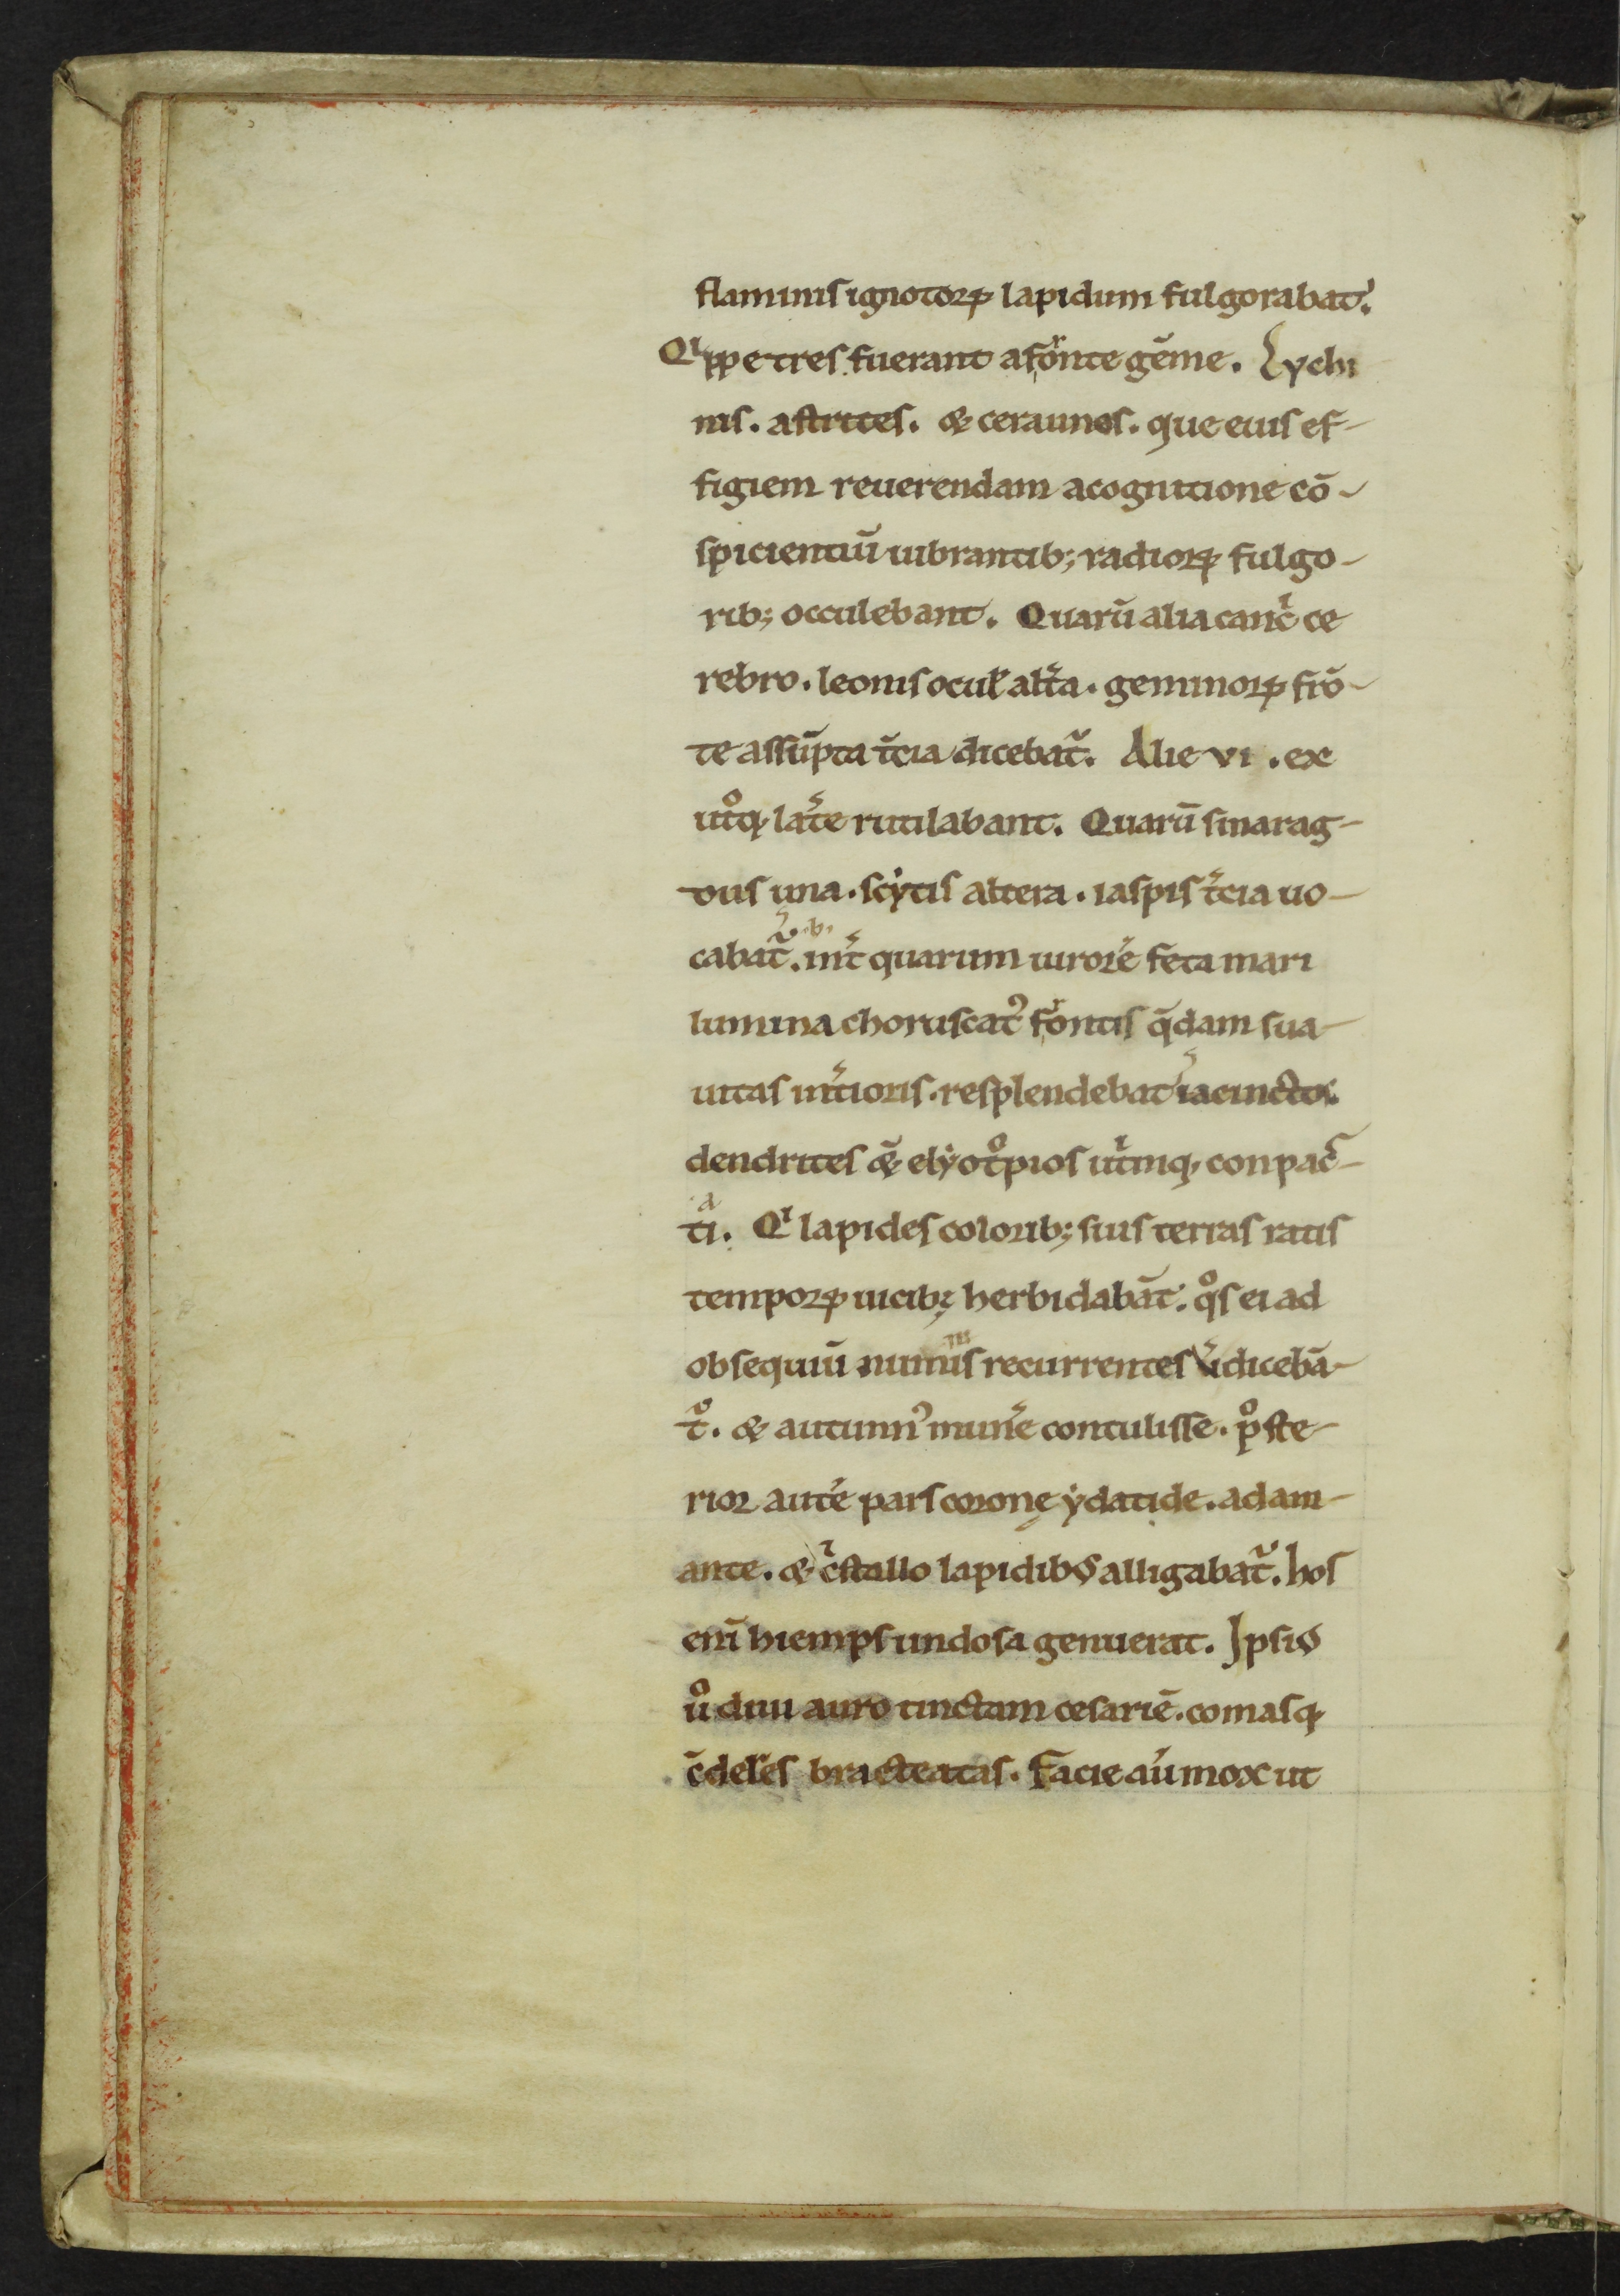 flammis ignotoꝝ lapidum fulgorabat.
Qͥppe tres fuerant a fͬonte gēme. Lychi
nis. astrites. & ceraunos. que eius ef-
figiem reuerendam a cognitione cō-
spicientiū uibrantib; radioꝝ fulgo-
rib; occulebant. Quarū alia cancͥ ce
rebro. leonis ocul' alt̃a. geminoꝝ frō-
te assūpta t̃cia dicebat᷑. Alie vi. ex
utͦq; lat̃e rutilabant. Quarū smarag-
dus una. scẏtis altera. iaspis t̃cia uo-
cabat᷑. .b. int̃ quarum uirorē feta mari
lumina choruscat᷑ fͬontis q̄dam sua-
uitas int̃ioris. resplendebat iacinctos.
dendrites & elẏotͦpios utͥmq; conpac-
ti. a Qͥ lapides colorib; suis terras ratis
tempoꝝ uicib; herbidabāt. qͦs ei ad
obsequiū numis recurrentes ũ dicebā-
tͦ. & autumn᷒ mun̄e contulisse. pͦste-
rior autē pars coronę ẏdatide. adam-
ante. & cͥstallo lapidibus alligabat᷑. hos
eni̅ hiemps undosa genuerat. Ipsius
uͦ diui auro tinctam cesariē. comasq;
c̄deres bracteatas. Facie aū mox ut